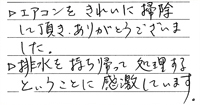 ▷エアコンを きれいに 掃除
して頂き、ありがとうございま
した。
▷排水を持ち帰って 処理する
ということに 感激しています。